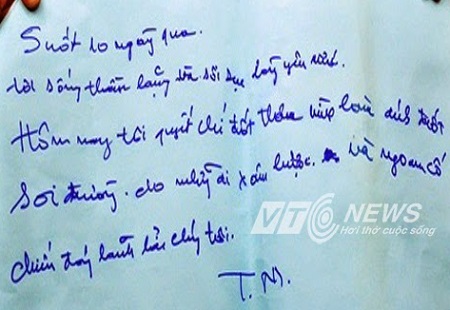 Suốt 10 ngày qua.
tôi sống thầm lặng và sôi sục lòng yêu nước.
Hôm nay tôi quyết chí đốt thân mình làm ánh đuốc
Soi đường. do những đi xâm lược. và ngoan cố
chiếm đóng lãnh hải chúng tôi.
T.M.
VTC NEWS
Hơi thở cuộc sống